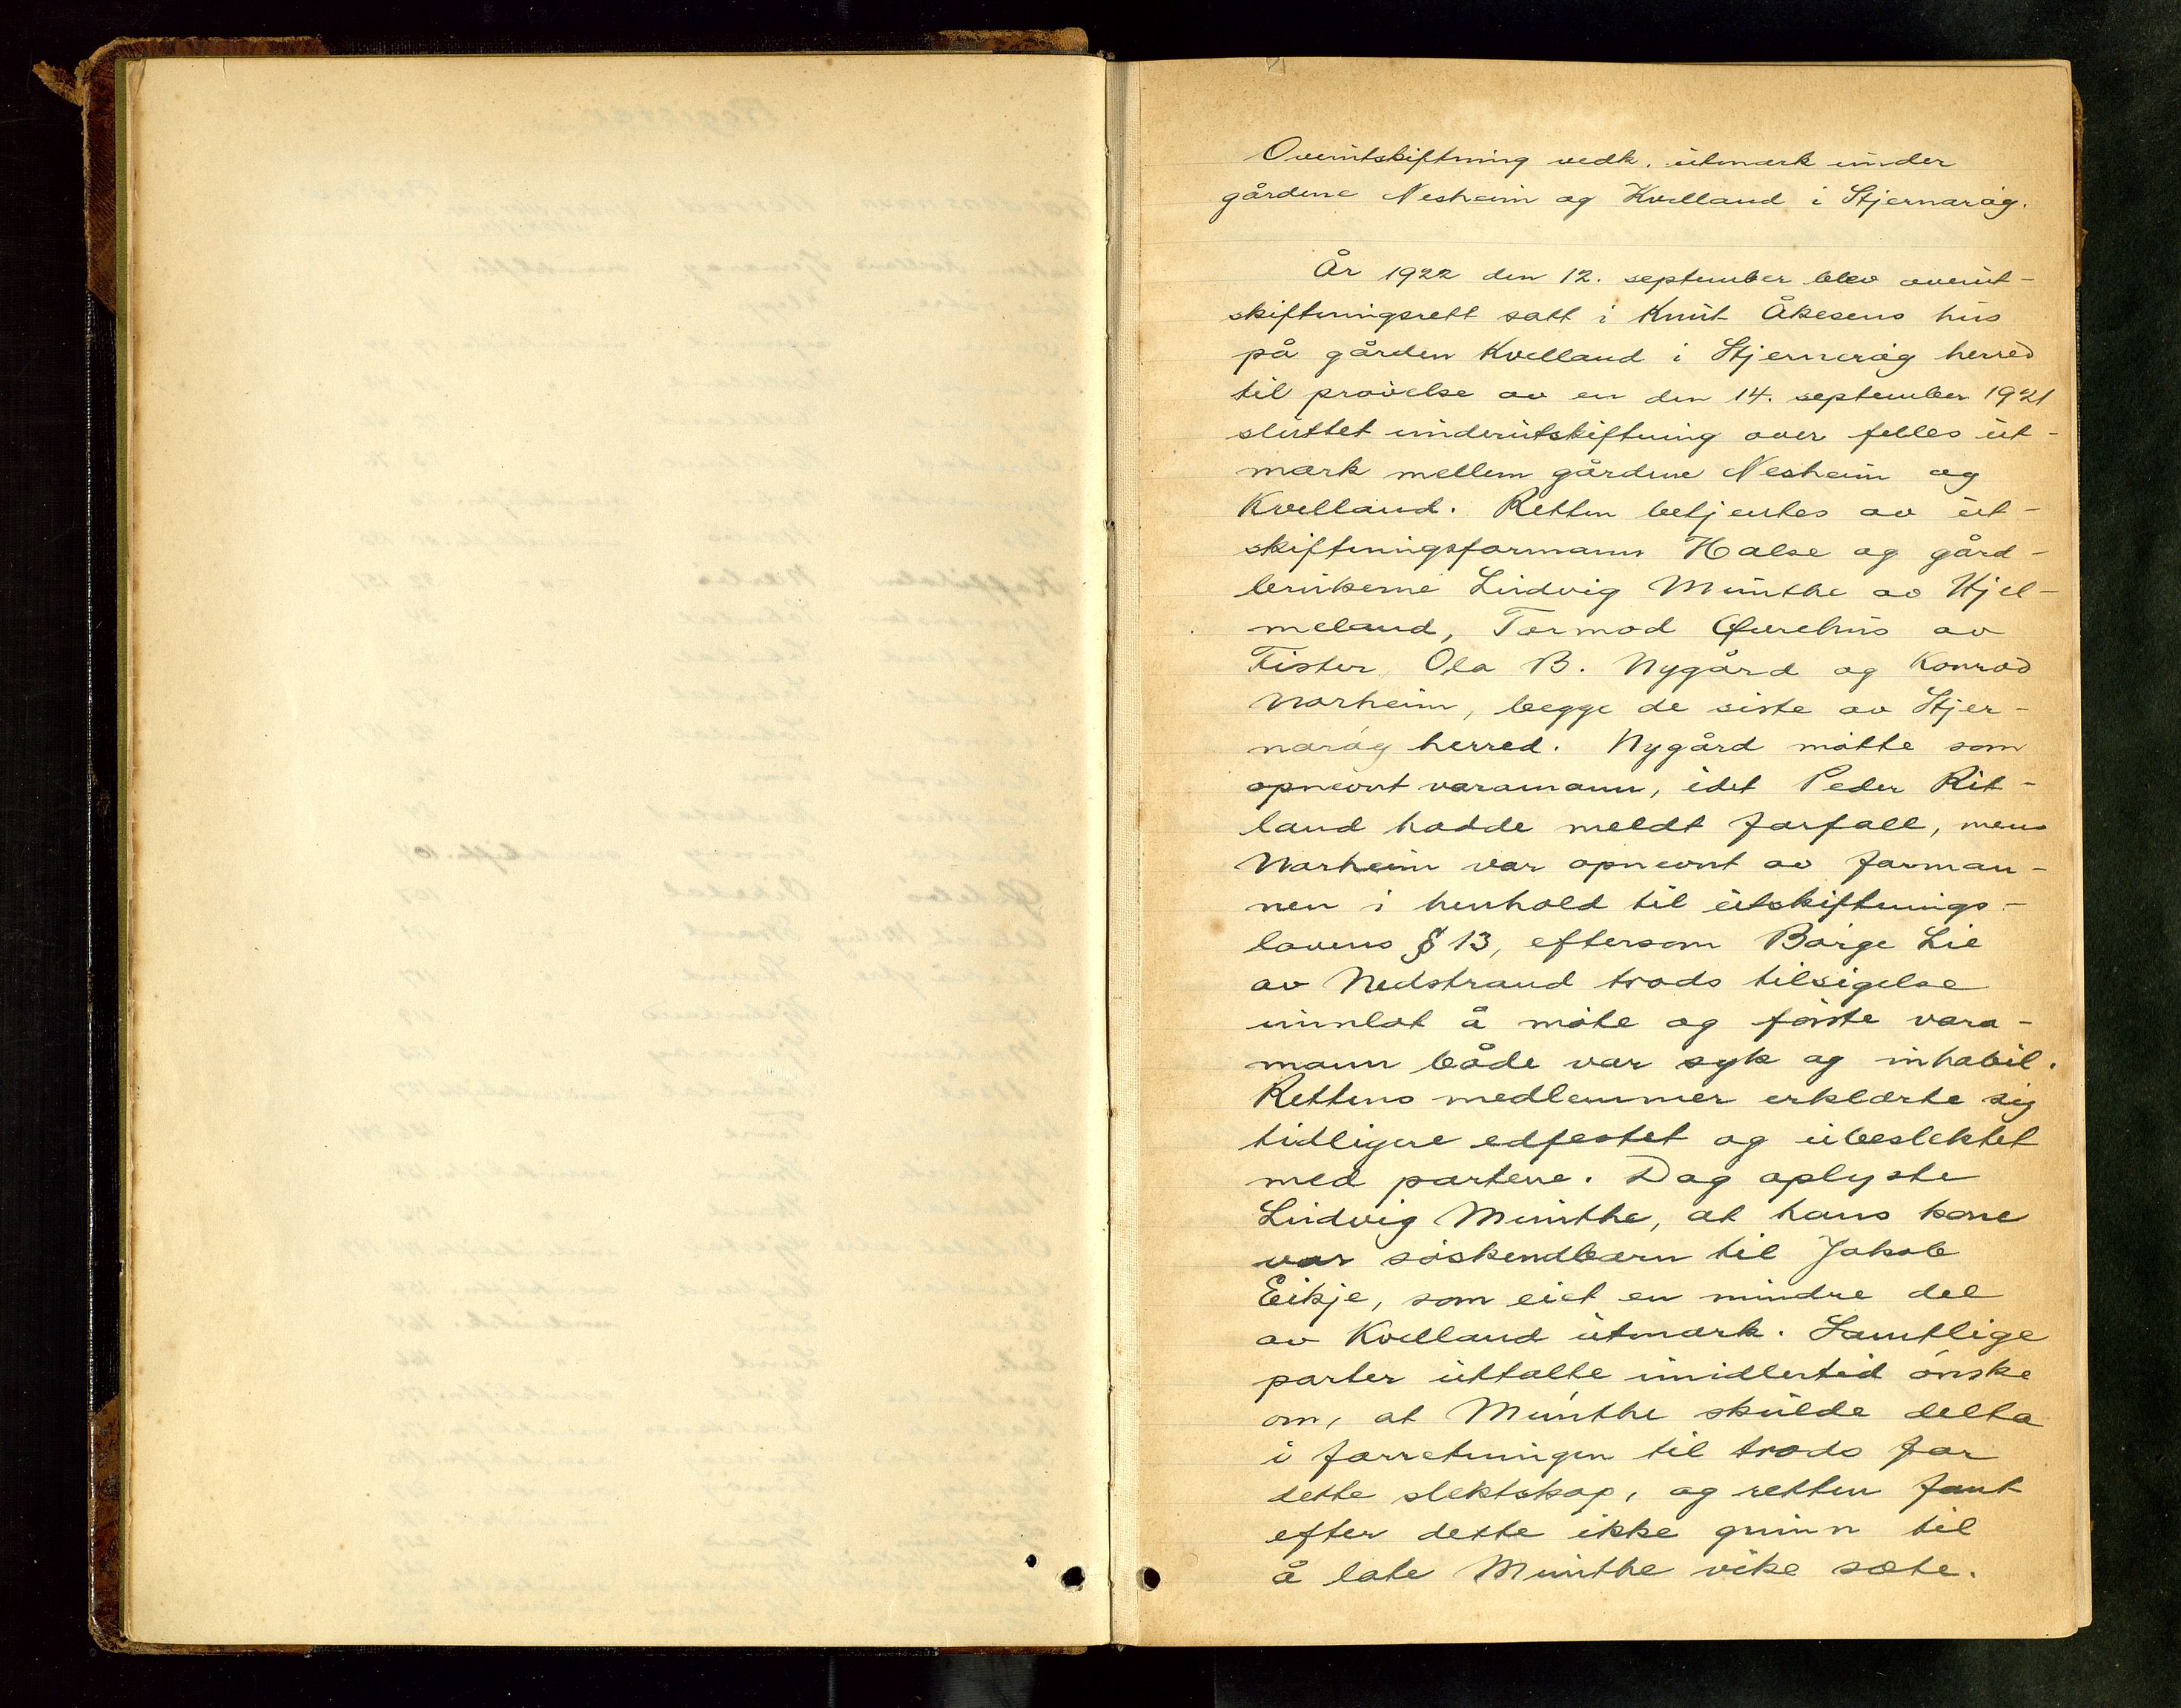 Overutskiftning vedk. utmark under
gårdene Nesheim og Kvelland i Stjernarøy.
År 1922 den 12. september blev overut-
skiftningsrett satt i Knut Åkesens hus
på gården Kvelland i Stjernerøy herred
til prøvelse av en den 14. september 1921
sluttet underutskiftning over felles ut-
mark mellem gårdene Nesheim og
Kvelland. Retten betjentes av ut-
skiftningsformann Halse og gård-
brukerne Ludvig Munthe av Hjel-
meland, Tormod Øvrehus av
Fister, Ola B. Nygård og Konrad
Norheim, begge de siste av Stjer-
narøy herred. Nygård møtte som
opnevnt varamann, idet Peder Rit-
land hadde meldt forfall, mens
Norheim var opnevnt av forman-
nen i henhold til utskiftnings-
lovens § 13, eftersom Børge Lie
av Nedstrand trods tilsigelse
unnlot å møte og første vara-
mann både var syk og inhabil.
Rettens medlemmer erklærte sig
tidligere edfestet og ubeslektet
med partene. Dog oplyste
Ludvig Munthe, at hans kone
var søskendbarn til Jakob
Eikje, som eiet en mindre del
av Kvelland utmark. Samtlige
parter uttalte imidlertid ønske
om, at Munthe skulde delta
i forretningen til trods for
dette slektskap, og retten fant
efter dette ikke grunn til
å late Munthe vike sæte.